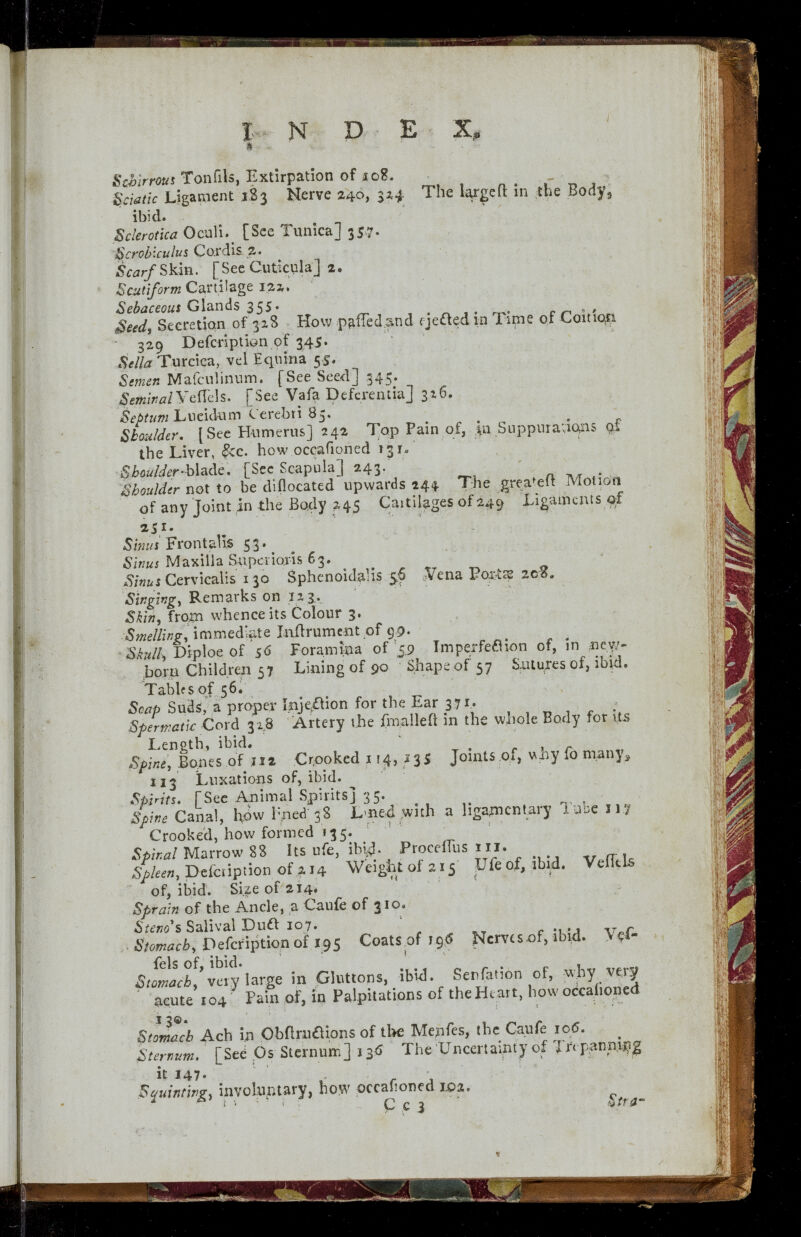 I N D E X.
Schirrous Tonſils, Extirpation of 108.
Sciatic Ligament 183 Nerve 240, 324 The largeſt in the Body,
ibid.
Sclerotica Oculi. [See Tunica] 357.
Scrobiculus Cordis 2.
Scarf Skin. [See Cuticula] 2.
Scutiform Cartilage 122.
Sebaceous Glands 355.
Seed, Secretion of 328 How paſſed and ejected in Time of Coition
329 Deſcription of 345.
Sella Turcica, vel Equina 55.
Semen Maſculinum. [See Seed] 345.
Seminal Veſſels. [See Vaſa Deferentia] 326.
Septum Lucidum Cerebri 85.
Shoulder. [See Humerus] 242 Top Pain of, in Suppurations of
the Liver, &c. how occaſioned 131.
Shoulder-blade. [See Scapula] 243.
Shoulder not to be diſlocated upwards 244 The greateſt Motion
of any Joint in the Body 245 Cartilages of 249 Ligaments of
251.
Sinus Frontalis 53.
Sinus Maxilla Superioris 63.
Sinus Cervicalis 130 Sphenoidalis 56 Vena Portæ 208.
Singing, Remarks on 123.
Skin, from whence its Colour 3.
Smelling, immediate Inſtrument of 99.
Skull, Diploe of 56 Foramina of 59 Imperfection of, in new-
born Children 57 Lining of 90 Shape of 57 Sutures of, ibid.
Tables of 56.
Soap Suds, a proper Injection for the Ear 371.
Spermatic Cord 328 Artery the ſmalleſt in the whole Body for its
Length, ibid.
Spine, Bones of 112 Crooked 114, 135 Joints of, why ſo many,
113 Luxations of, ibid.
Spirits. [See Animal Spirits] 35.
Spine Canal, how lined 38 Lined with a ligamentary Tube 117
Crooked, how formed 135.
Spinal Marrow 88 Its uſe, ibid. Proceſſus 111.
Spleen, Deſcription of 214 Weight of 215 Uſe of, ibid. Veſſels
of, ibid. Size of 214.
Sprain of the Ancle, a Cauſe of 310.
Steno's Salival Duct 107.
Stomach, Deſcription of 195 Coats of 196 Nerves of, ibid. Veſ-
ſels of, ibid.
Stomach, very large in Gluttons, ibid. Senſation of, why very
acute 104 Pain of, in Palpitations of the Heart, how occaſioned
130.
Stomach Ach in Obſtructions of the Menſes, the Cauſe 106.
Sternum. [See Os Sternum] 136 The Uncertainty of Trepanning
it 147.
Squinting, involuntary, how occaſioned 102.
C c 3
Stra-